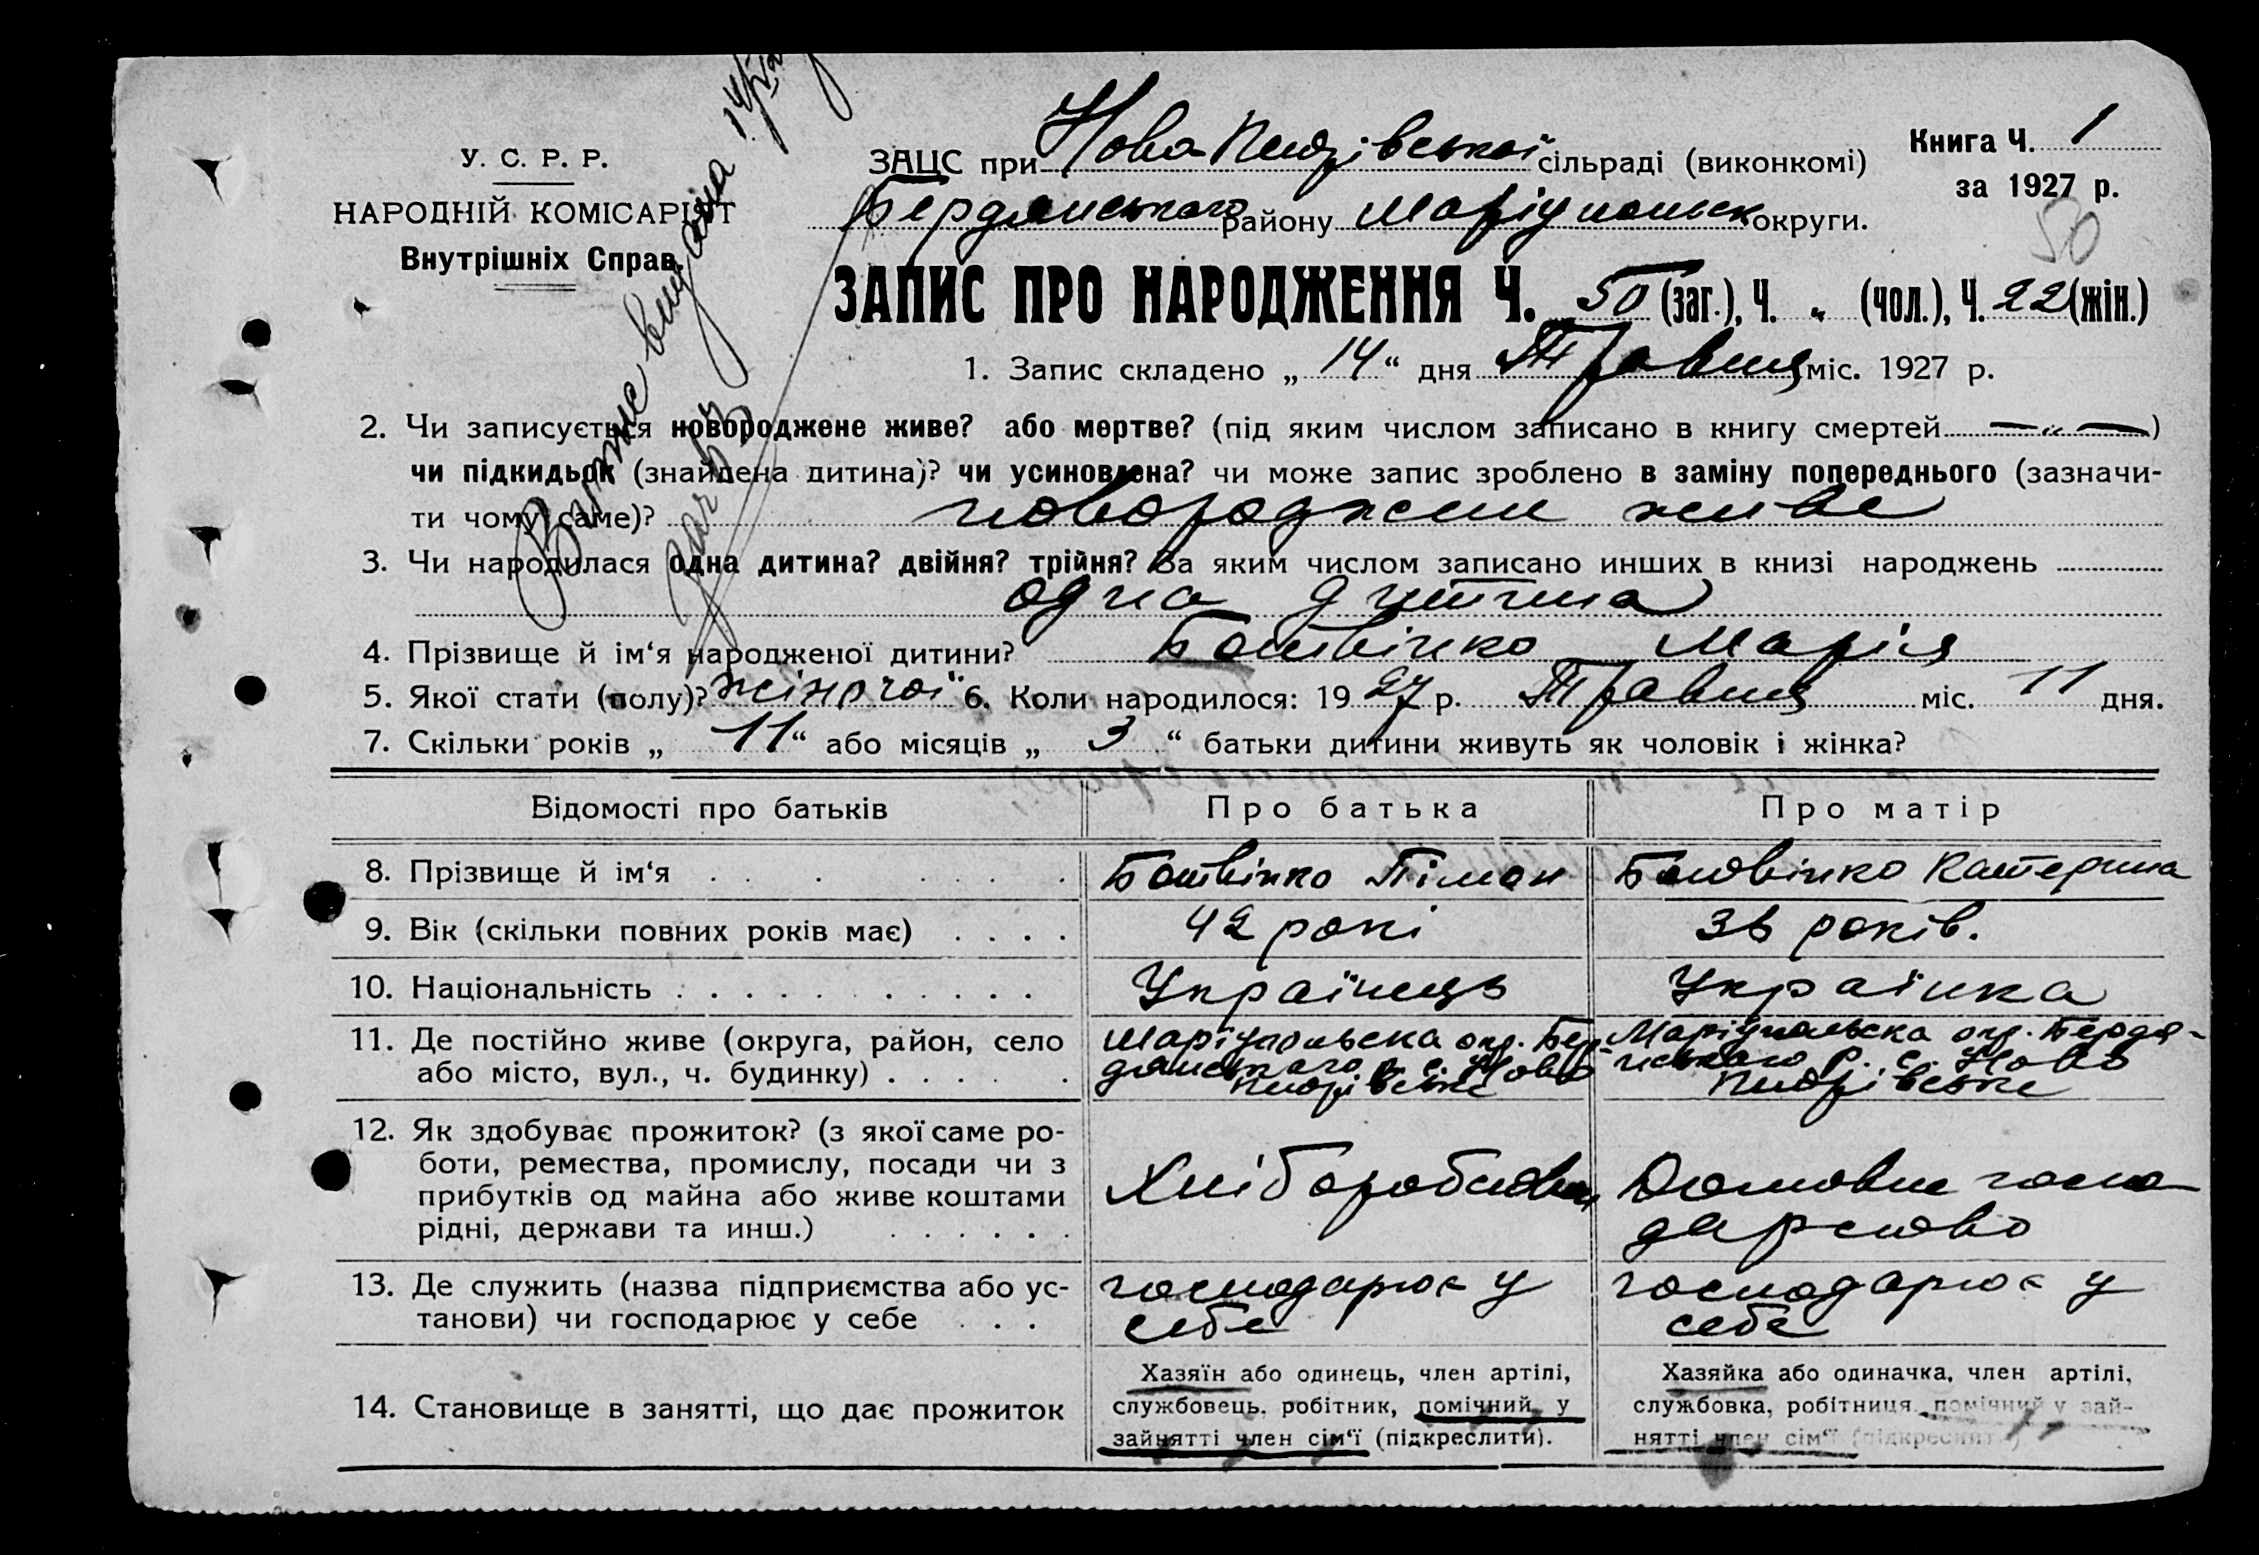 У. С. Р. Р.
НАРОДНІЙ КОМІСАРІЯТ
Внутрішніх Справ.
Витяг видана 14/V
ЗАЦС при Ново-Петрівської сільраді (виконкомі)
Бердянського району Маріупольськ округи.
Книга Ч. 1
за 1927 р.
50
ЗАПИС ПРО НАРОДЖЕННЯ Ч. 50 (заг.), Ч. „ (чол.), Ч. 22 (жін.)
1. Запис складено „ 14 “ дня Травня міс. 1927 р.
2. Чи записується новороджене живе? або мертве? (під яким числом записано в книгу смертей — „ —)
чи підкидьок (знайдена дитина)? чи усиновлена? чи може запис зроблено в заміну попереднього (зазначи-
ти чому саме)? новороджене живе
3. Чи народилася одна дитина? двійня? трійня? За яким числом записано инших в книзі народжень
одна дитина
4. Прізвище й ім‘я народженої дитини? Ботвінко Марія
5. Якої стати (полу)? жіночої 6. Коли народилося: 1927 р. Травня міс. 11 дня.
7. Скільки років „ 11 “ або місяців „ 3 “ батьки дитини живуть як чоловік і жінка?
Відомості про батьків Про батька Про матір
8. Прізвище й ім‘я Ботвінко Тіман Ботвінко Катерина
9. Вік (скільки повних років має) 42 рокі 36 років.
10. Національність Українець Українка
11. Де постійно живе (округа, район, село
або місто, вул., ч. будинку)
Маріупольска окр. Бер-
дянського р. с. Ново
Петрівське
Маріупольска окр. Бердя-
нського р. с. Ново
Петрівське
12. Як здобуває прожиток? (з якої саме ро-
боти, ремества, промислу, посади чи з
прибутків од майна або живе коштами
рідні, держави та инш.)
Хліборобство
Домовне госпо-
дарство
13. Де служить (назва підприємства або ус-
танови) чи господарює у себе
господарює у
себе
господарює у
себе
14. Становище в занятті, що дає прожиток
Хазяїн або одинець, член артілі,
службовець, робітник, помічний у
зайнятті член сім‘ї (підкреслити).
Хазяйка або одиначка, член артілі,
службовка, робітниця, помічний у зай-
нятті член сім‘ї (підкреслити)